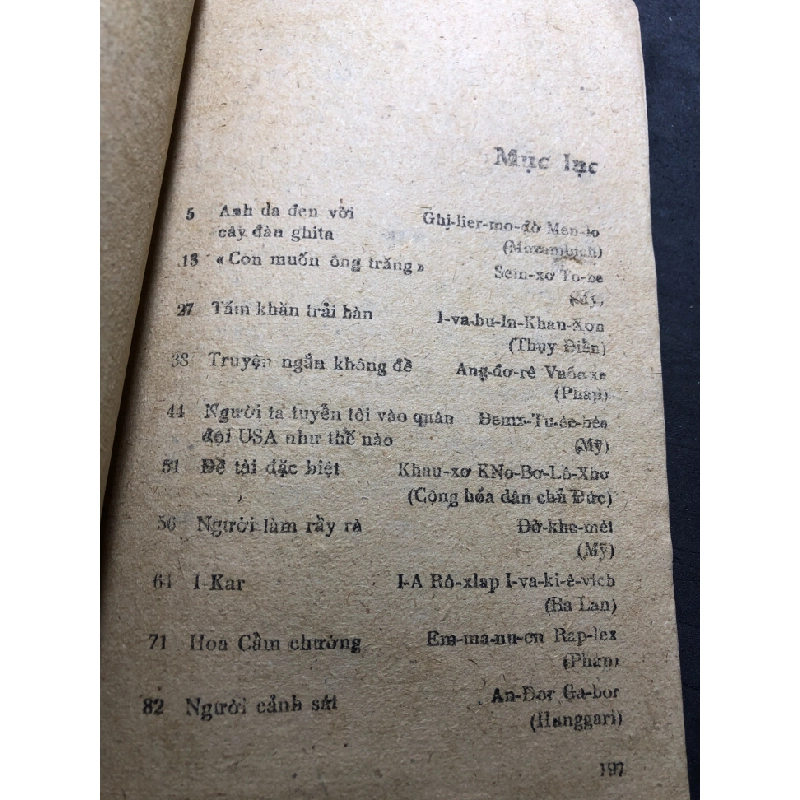 Mục lục
5 Anh da đen với Ghi-lier-mo-đờ Men-
cây đàn ghita
18 «Con muốn ông trăng» Sem-xơ
27 Tấm khăn trải bàn I-va-bu-In-Khau-Xon
(Thụy Điển)
38 Truyện ngắn không đề Ang-đơ-rê
(Pháp)
44 Người ta tuyển tôi vào quân
đội USA như thế nào (Mỹ)
51 Đề tài đặc biệt Khau-xơ KNo-Bơ-Lô-Xhơ
(Cộng hòa dân chủ Đức)
56 Người làm rầy rà Đờ-khe-mêi
(Mỹ)
64 I-Kar I-A Rô-xlap I-va-ki-ê-vich
(Ba Lan)
71 Hoa Cẩm chướng Em-ma-nu-en Rap-lex
(Pháp)
82 Người cảnh sát An-Đor Ga-bor
(Hanggari)
197